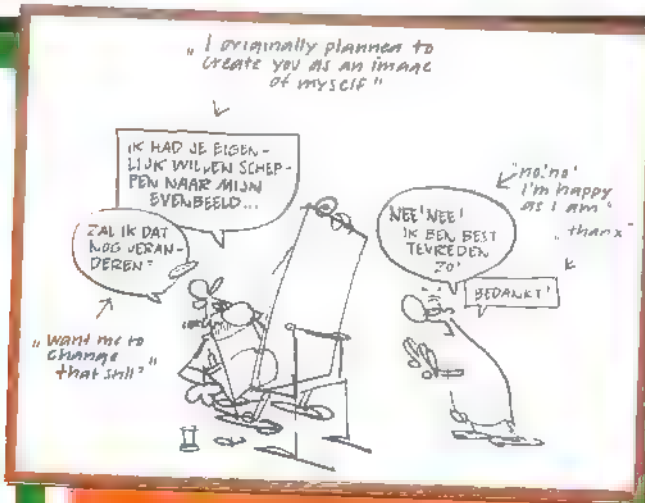 „ I originally planned to
create you as an image
of myself "
IK HAD JE EIGEN-
LIJK WILLEN SCHEP-
PEN NAAR MIJN
EVENBEELD...
ZAL IK DAT
NOG VERAN-
DEREN?
„ Want me to
change
that still? "
NEE! NEE!
IK BEN BEST
TEVREDEN
ZO!
BEDANKT!
"no! no!
I'm happy
as I am"
„ thanx "